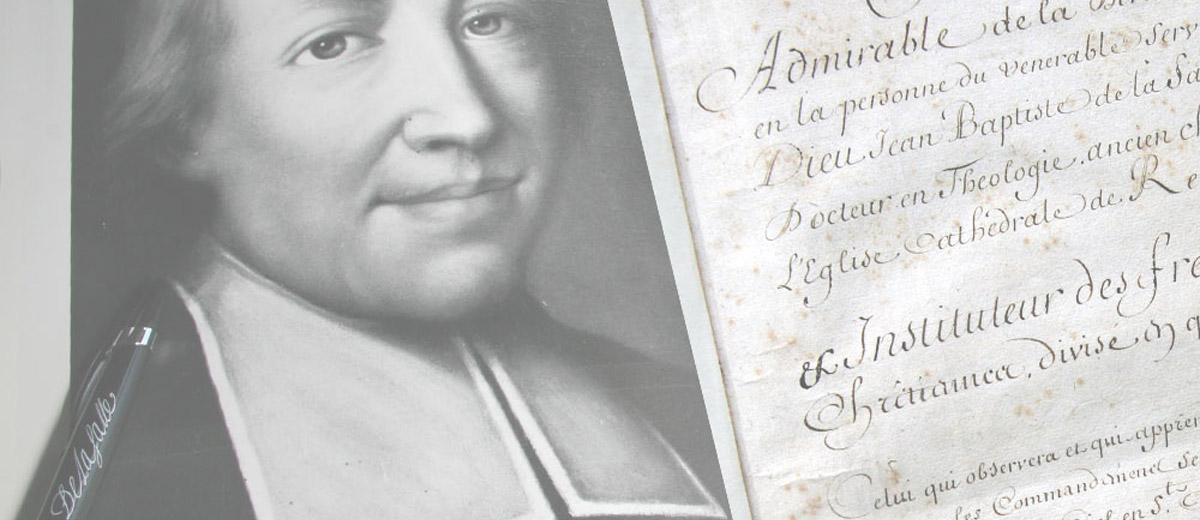 De La Salle
Admirable de la
en la personne du venerable Serv
Dieu Jean Baptiste de la Sa
Docteur en Theologie, ancien c
l'Eglise Cathédrale de Re
& Instituteur des fre
Chrétiennes, divisé en q
Celui qui observera et qui appren
les Commandemens